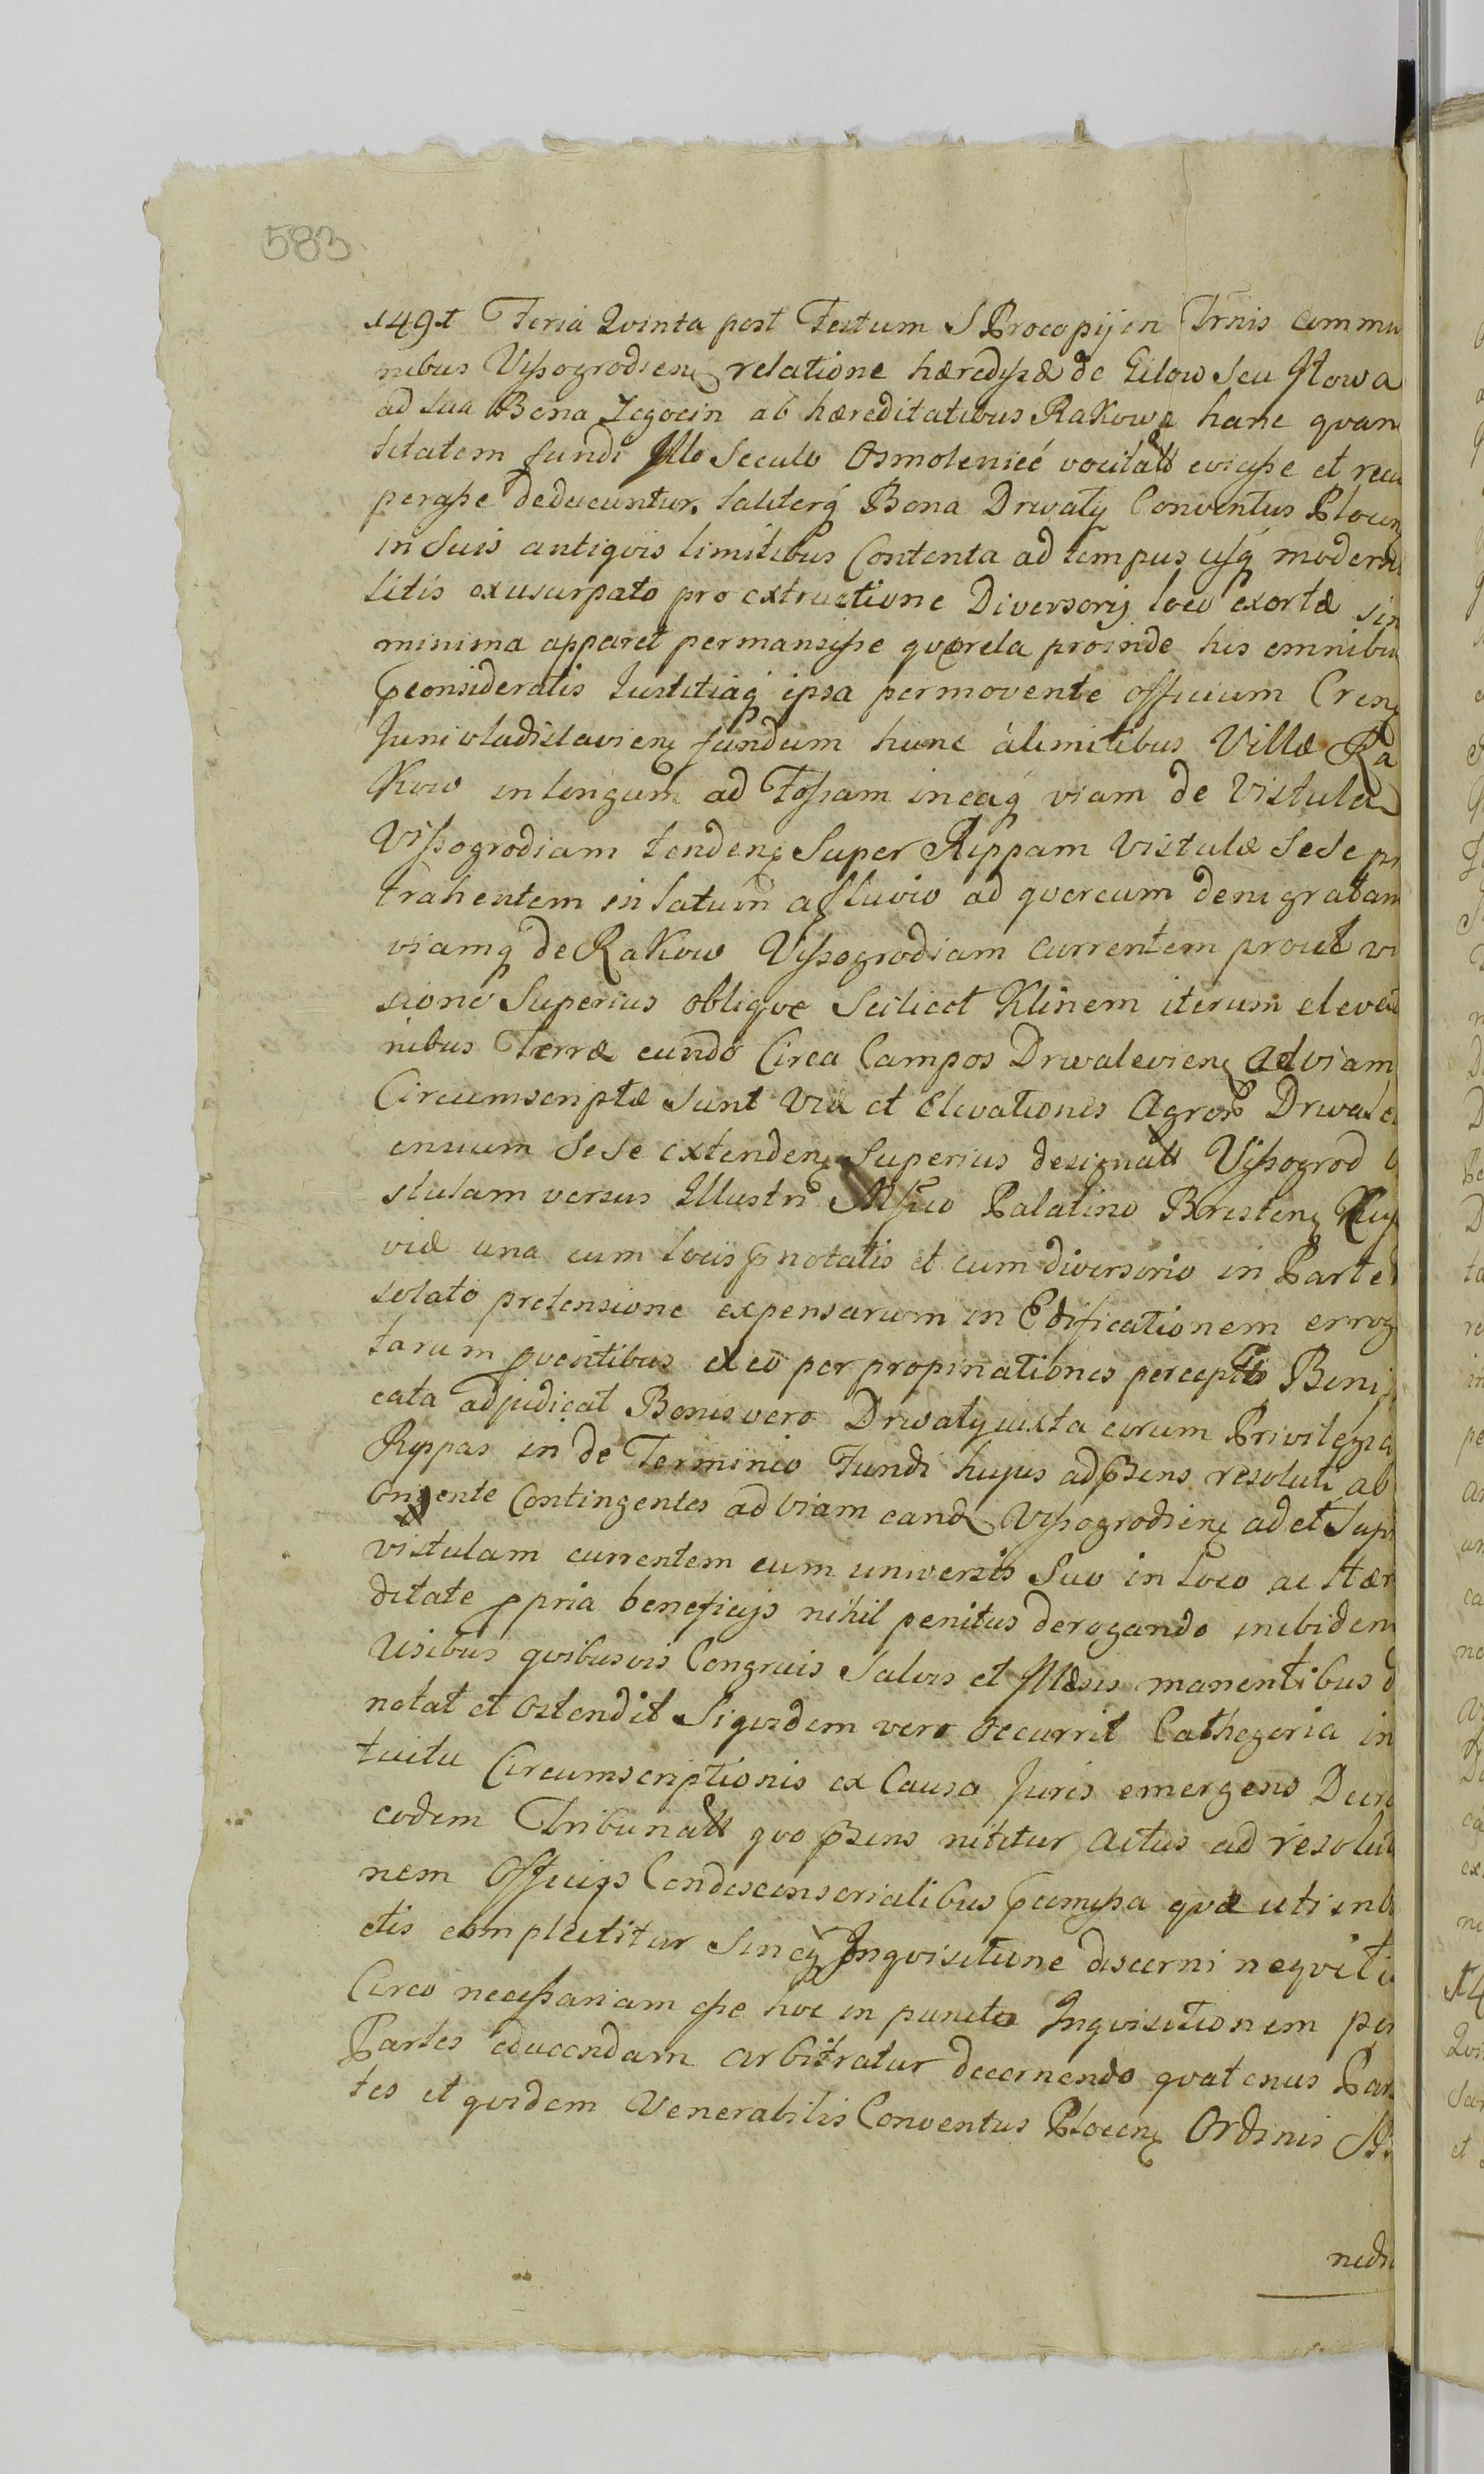 583
1491 Feria Qvinta post Festum S Procopij in Trnis Commu
nibus Vyssogrodien relatione hæredissæ de Gilow Seu Jłowa
ad sua Bona Zegocin ab hæreditatibus Rakowę hanc qvan
titatem fundi Illo Seculo Osmolenice vocitatt evicisse et recu
perasse deducuntur, taliterq Bona Drwały Conventus Plocen
in suis antiqvis limitibus Contenta ad tempus usq moderna
litis ex usurpato pro extructione Diversorij loco exortæ sin
minima apparet permansisse qværela proinde his omnibu
Pconsideratis Iustitiaq ipsa permovente officium Cren
Junivladislavien fundum hunc à limitibus Villæ Ra
kow in longum ad Fossam in eaq viam de Vistula
Vissogrodiam tenden Super Rippam Vistulæ Sese pr
trahentem in latum a fluvio ad qvercum denigratam
viamq de Rakow Vyssogrodiam currentem prout vi
sione Superius obliqve Scilicet Klinem iterum elevat
nibus Terræ eundo Circa Campos Drwalevien ad viam
Circumscriptæ sunt Via et Elevationes Agror Drwale
ensium Sese extenden Superius designatt Vissogrod
stulam versus Illustri Mfico Palatino Bresten Kuy
viæ una cum locis pnotatis et cum diversorio in Parte
solato pretensione expensarum in Edificationem errog
tarum proventibus ex eo per propinationes perceptis Beni
cata adjudicat Bonis vero Drwały iuxta eorum Privilegia
Ryppas in de Terminio Fundi hujus ad psens resoluti ab
Oriente Contingentes ad viam eand Vissogrodien ad et Supr
vistulam currentem cum universis Suo in loco ac Hær
ditate ppria beneficijs nihil penitus derogando inibidem
Usibus qvibusvis Congruis Salvis et Illæsis manentibus d
notat et Ostendit Siqvidem vero Occurrit Cathegoria in
tuitu Circumscriptionis ex Causa Juris emergens Decre
eodem Tribunatt qvo psens nititur actus ad resolut
nem Officijs Condescensorialibus Pcomissa qvæ uti in
etis complectitur Sineq Inqvisitione discerni neqvit i
Circo necessariam esse hoc in puncto Inqvisitionem per
Partes educendam arbitratur decernendo qvatenus Par
tes et qvidem Venerabilis Conventus Plocen Ordinis S
nedi